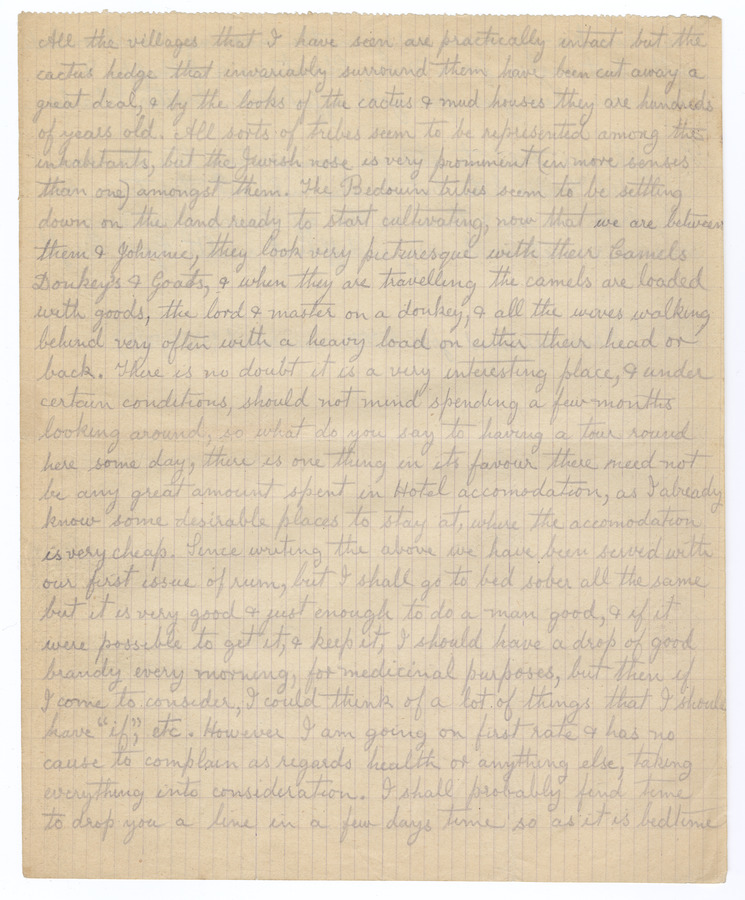 All the villages that I have seen are practically intact but the
cactus hedge that invariably surround them have been cut away a
great deal, & by the looks of the cactus & mud houses they are hundreds
of years old. All sorts of tribes seem to be represented among the
inhabitants, but the Jewish nose is very prominent (in more senses
than one) amongst them. The Bedouin tribes seem to be settling
down on the land ready to start cultivating, now that we are between
them & Johnnie, they look very picturesque with their Camels
Donkeys & Goats, & when they are travelling the camels are loaded
with goods, the lord & master on a donkey, & all the wives walking
behind very often with a heavy load on either their head or
back. There is no doubt it is a very interesting place, & under
certain conditions, should not mind spending a few months
looking around, so what do you say to having a tour round
here some day, there is one thing in its favour there need not
be any great amount spent in Hotel accomodation, as I already
know some desirable places to stay at, where the accomodation
is very cheap. Since writing the above we have been served with
our first issue of rum, but I shall go to bed sober all the same
but it is very good & just enough to do a man good, & if it
were possible to get it, & keep it, I should have a drop of good
brandy every morning, for medicinal purposes, but then if
I come to consider, I could think of a lot of things that I should
have "if", etc. However I am going on first rate & has no
cause to complain as regards health or anything else, taking
everything into consideration. I shall probably find time
to drop you a line in a few days time so as it is bedtime